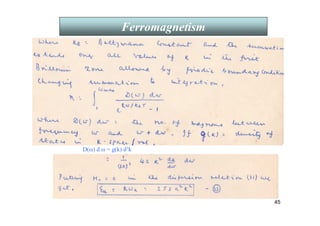 Ferromagnetism
where kB = Boltzmann constant and the summation
extends over all values of k in the first
Brillouin zone allowed by periodic boundary conditions
Changing summation to integration.
n = ∫ D(ω) dω / e^{ħω/kBT} - 1
where D(ω) dω = the no. of magnons between
frequency ω and ω + dω. If g(k) = density of
states in k-space/vol.
D(ω) d ω = g(k) d³k
= 1/(2π)³ 4π k² dk/dω dω
Putting H₀ = 0 in the dispersion relation (11) we
get, Ek = ħωk = 2JSa²k²
45